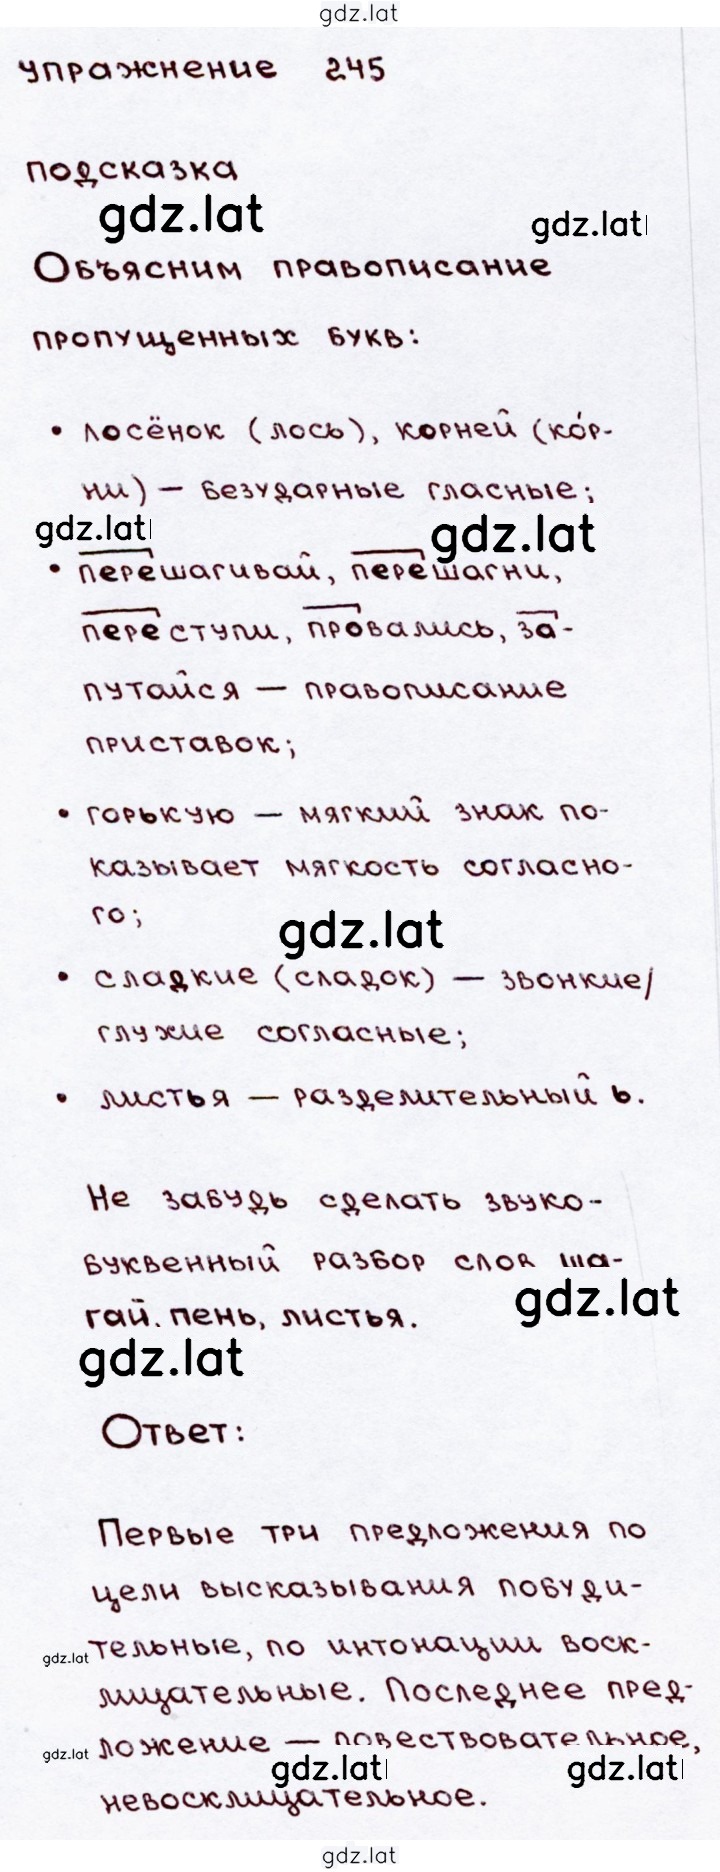 gdz.lat
упражнение 245
подсказка
gdz.lat gdz.lat
Объясним правописание
пропущенных букв:
• лосёнок (лось), корней (ко́р-
ни) – безударные гласные;
gdz.lat gdz.lat
• перешагивай, перешагни,
переступи, провались, за-
путайся – правописание
приставок;
• горькую – мягкий знак по-
казывает мягкость согласно-
го;
gdz.lat
• сладкие (сладок) – звонкие/
глухие согласные;
• листья – разделительный ь.
Не забудь сделать звуко-
буквенный разбор слов ша-
гай, пень, листья.
gdz.lat
gdz.lat
Ответ:
Первые три предложения по
цели высказывания побуди-
gdz.lat тельные, по интонации воск-
лицательные. Последнее пред-
gdz.lat ложение – повествовательное,
gdz.lat gdz.lat
невосклицательное.
gdz.lat